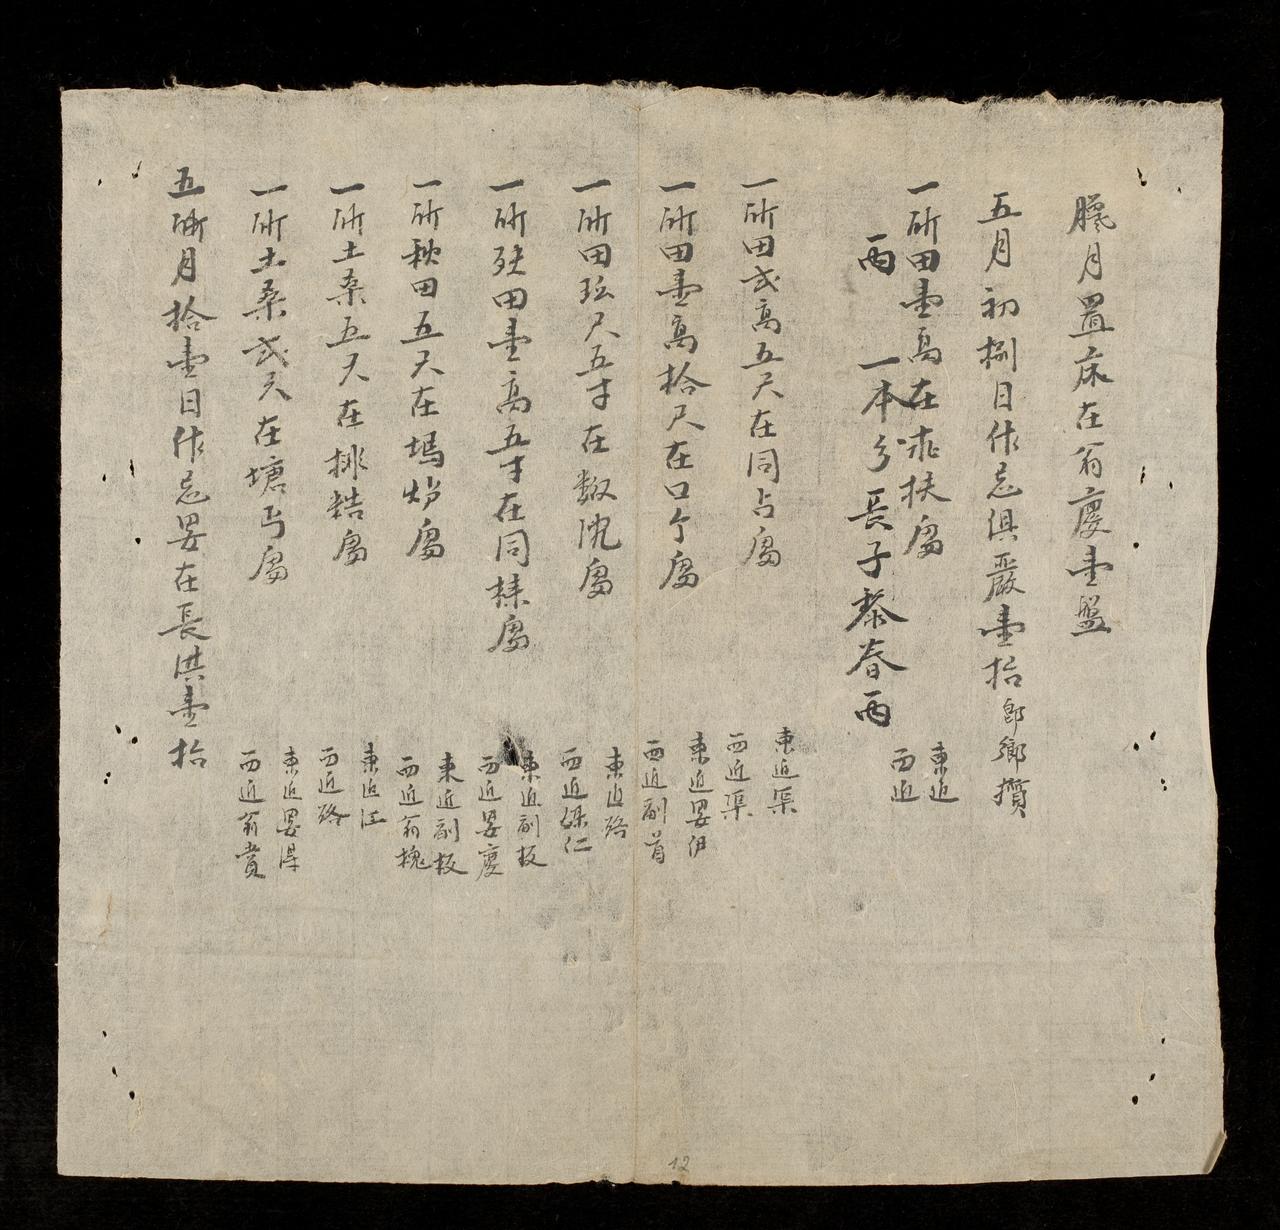 臘月置床在翁慶壹盤
五月初捌日作忌俱嚴壹抬鄉㩴
一所田壹高在扶處
東近
西近
一本分長子黎春两
两
一所田弍高五尺在同占處
東近渠
西近渠
一所田壹高拾尺在口个處
東近妟伊
西近副首
一所田尺五寸在處
東近路
西近仁
一所田壹高五寸在同處
東近副板
西近妟慶
一所秋田五尺在塢處
東近副板
西近翁槐
一所土桑五尺在排處
東近江
西近路
一所土桑弍尺在塘丐處
東近妟得
西近翁賞
五月拾壹日作忌妟在長洪壹抬
12